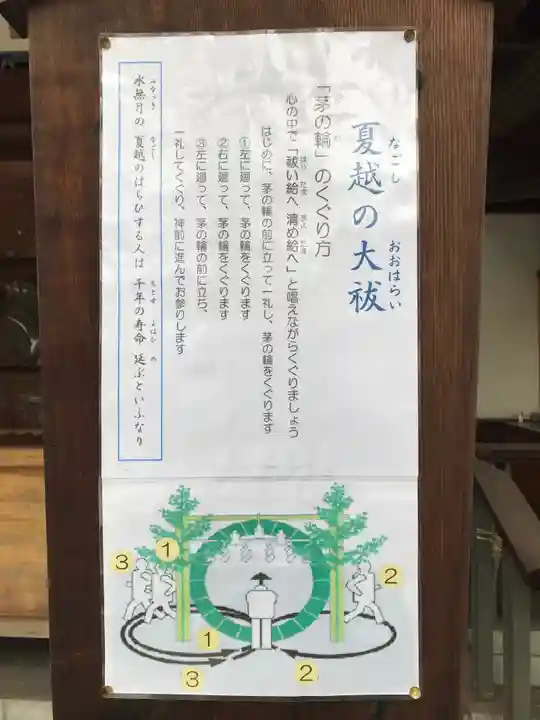 夏越の大祓
なごし
おおはらい
「茅の輪」のくぐり方
心の中で「祓い給へ 清め給へ」と唱えながらくぐりましょう
はじめに、茅の輪の前に立って一礼し、茅の輪をくぐります
①左に廻って、茅の輪をくぐります
②右に廻って、茅の輪をくぐります
③左に廻って、茅の輪の前に立ち、
一礼してくぐり、神前に進んでお参りします
水無月の 夏越のはらひする人は 千年の寿命 延ぶといふなり
みなつき
なごし
ちとせ
よはひ
の
1
3
2
1
3
2